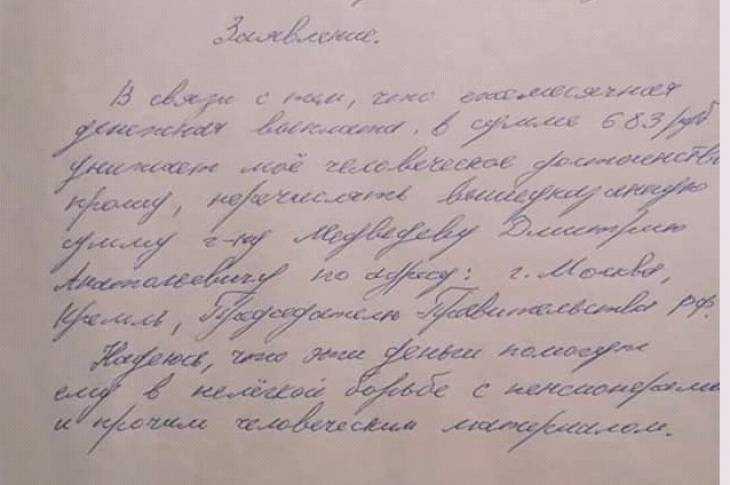 Заявление.
В связи с тем, что ежемесячная
денежная выплата в сумме 683 руб
унижает моё человеческое достоинство
прошу, перечислять вышеуказанную
сумму г-ну Медведеву Дмитрию
Анатольевичу по адресу: г. Москва,
Кремль, Председателю Правительства РФ.
Надеюсь, что эти деньги помогут
ему в нелёгкой борьбе с пенсионерами
и прочим человеческим материалом.